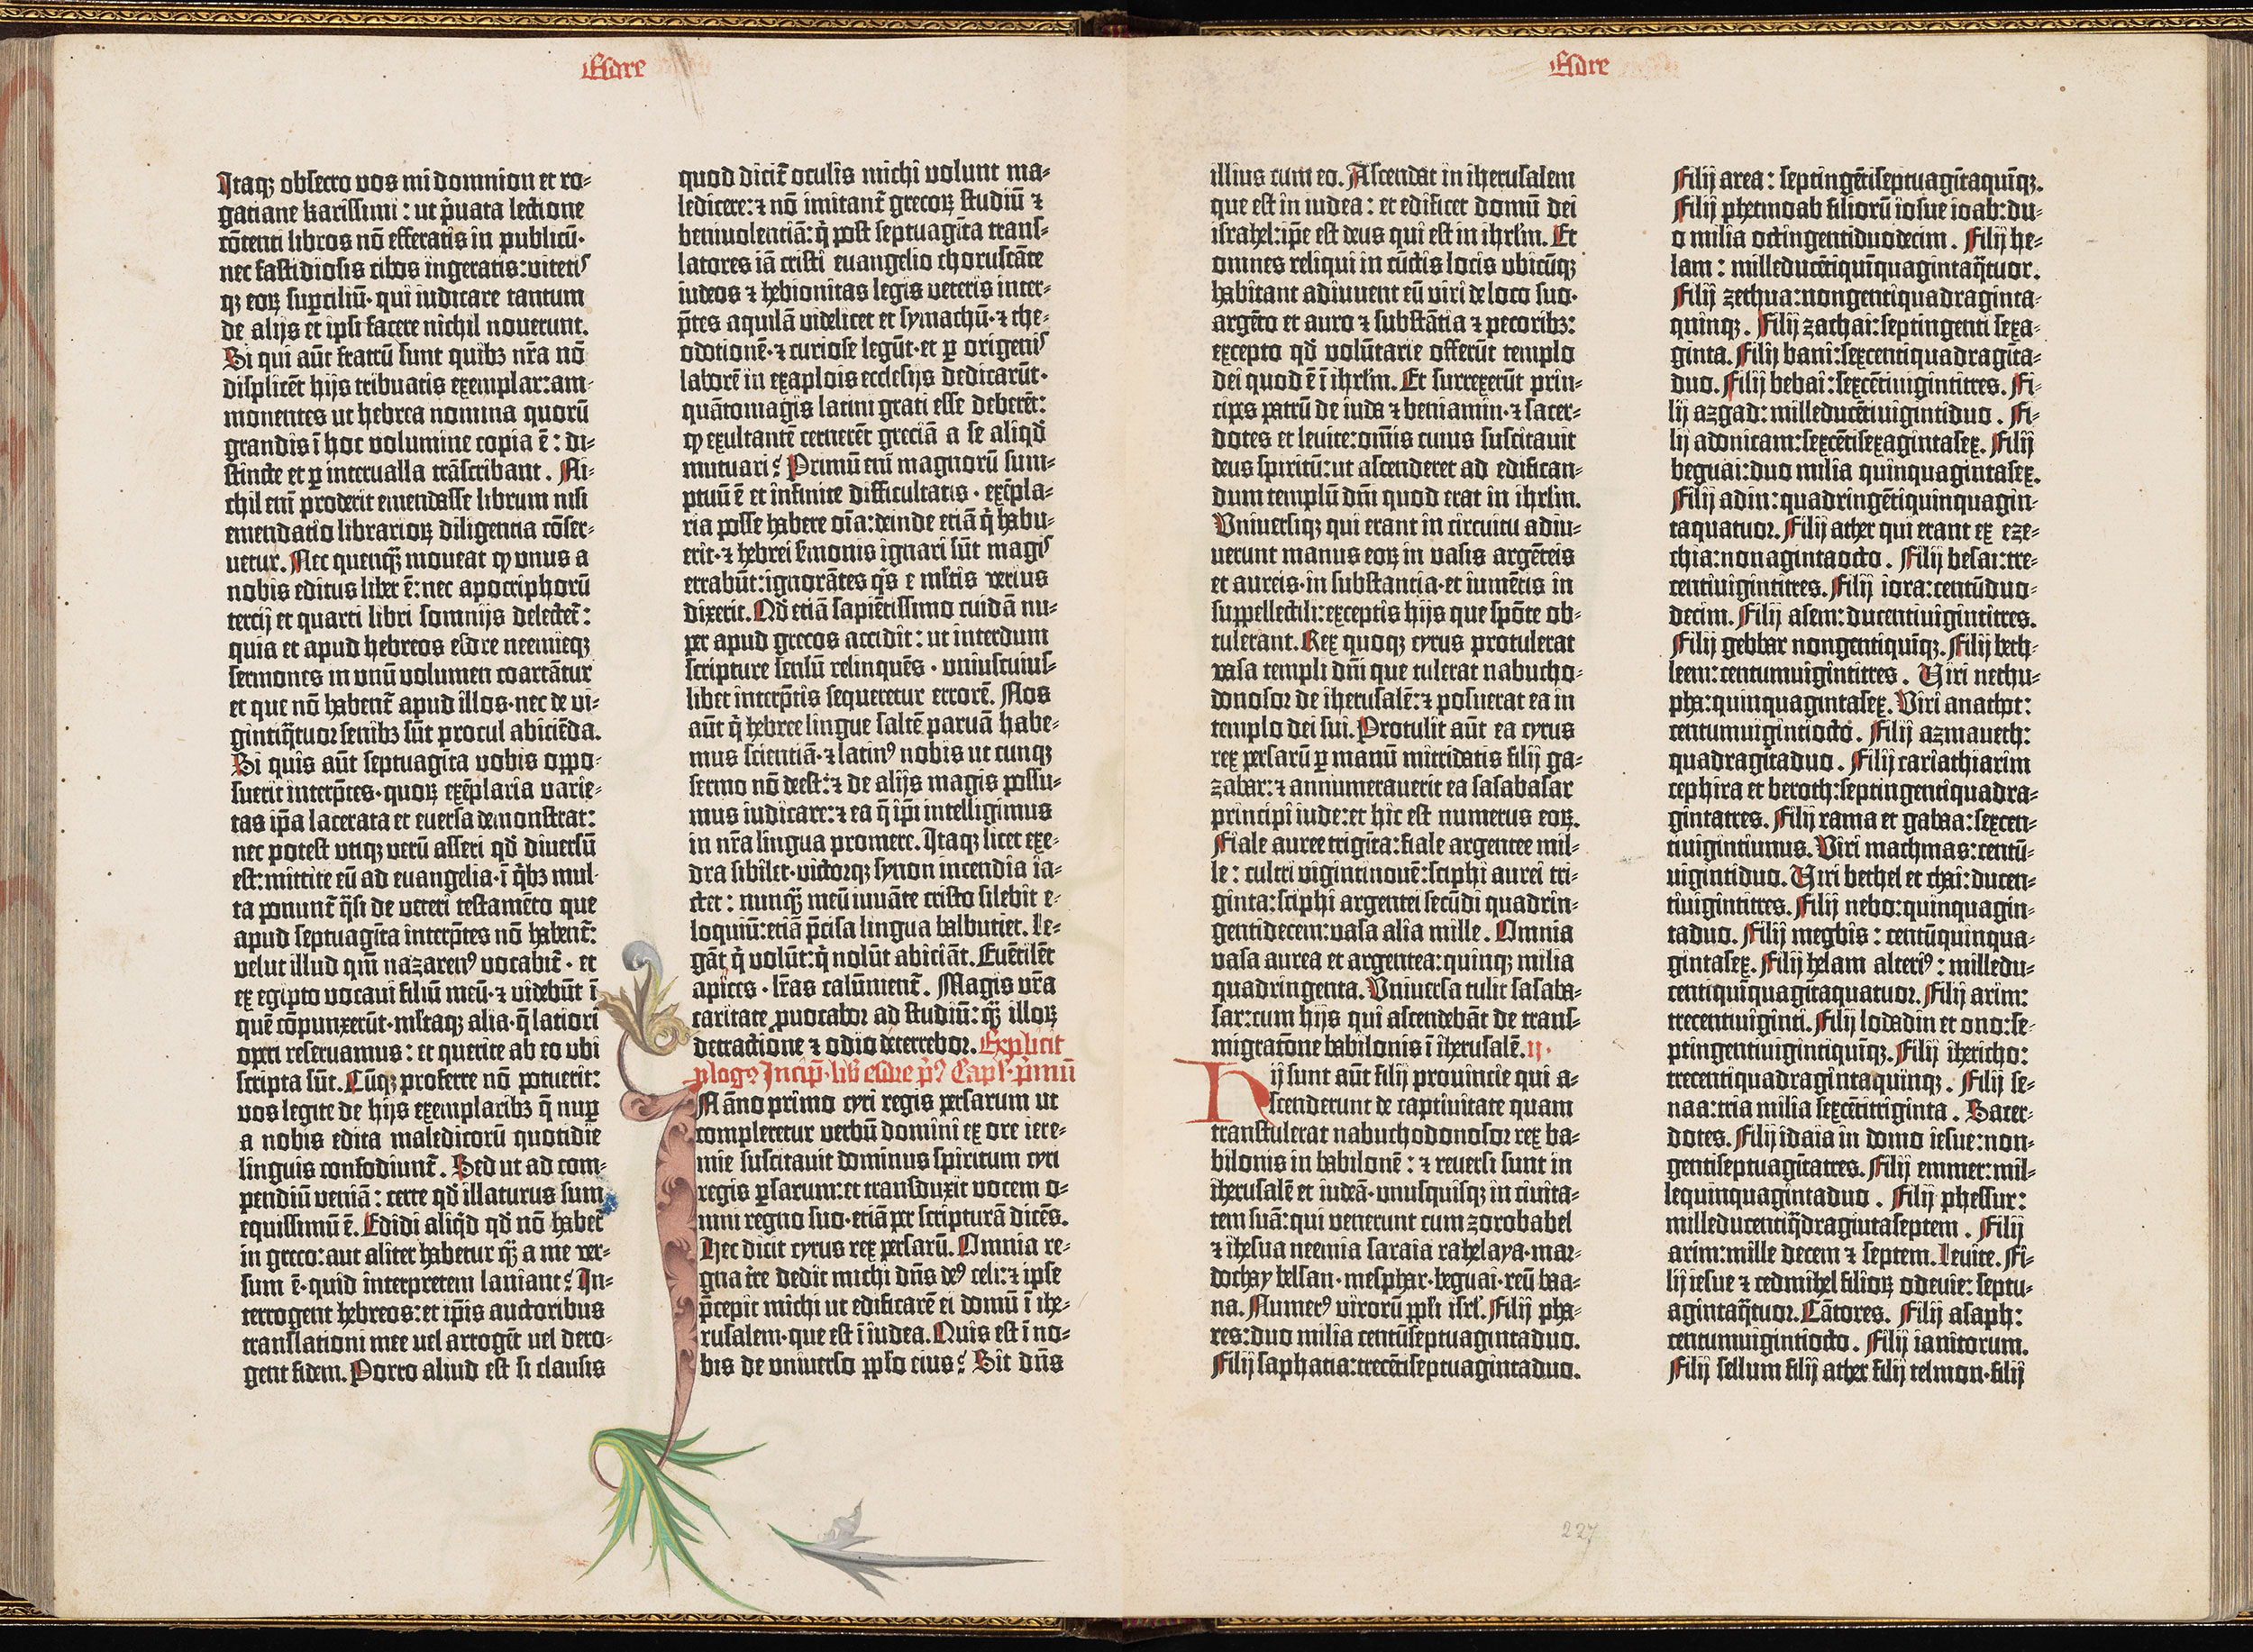 Esdre
Itaqꝫ obsecro vos mi domnion et ro-
gatiane karissimi: ut p̃uata lectione
cõtenti libros nõ efferatis in publicũ·
nec fastidiosis cibos ingeratis: vitetis
qꝫ eoꝝ suꝑciliũ· qui iudicare tantum
de alijs et ipsi facere nichil noverunt.
Si qui aũt fratrũ sunt quibꝫ nr̃a nõ
displicẽt hijs tribuatis exemplar: am-
monentes ut hebrea nomina quorũ
grandis ĩ hoc volumine copia ẽ: di-
stincte et ꝑ intervalla trãscribant. Ni-
chil eni᷑ proderit emendasse librum nisi
emendatio librarioꝝ diligentia cõser-
uetur. Nec quenqꝫ̃ moueat ꝙ vnus a
nobis editus liber ẽ: nec apocriphorũ
tercij et quarti libri somnijs delectet᷑:
quia et apud hebreos esdre neemieqꝫ
sermones in vnũ volumen coartãtur
et que nõ habent᷑ apud illos· nec de vi-
gintiq̃tuor senibꝫ sũt procul abiciẽda.
Si quis aũt septuagĩta vobis oppo-
suerit interp̃tes· quoꝝ exẽplaria varie-
tas ip̃a lacerata et euersa demonstrat:
nec potest vtiqꝫ verũ asseri qd̃ diuersũ
est: mittite eũ ad euangelia· ĩ q̃bꝫ mul-
ta ponunt᷑ q̃si de veteri testamẽto que
apud septuagĩta interp̃tes nõ habent᷑:
velut illud qm̃ nazarenꝰ vocabit᷑· et
ex egipto vocaui filiũ meũ· ⁊ videbũt ĩ
quẽ cõpunxerũt· ml̃taqꝫ alia· q̃ latiori
operi reseruamus: et querite ab eo vbi
scripta sũt. Cũqꝫ proferre nõ potuerit:
vos legite de hijs exemplaribꝫ q̃ nuꝑ
a nobis edita maledicorũ quotidie
linguis confodiunt᷑. Sed ut ad com-
pendiũ veniã: certe qd̃ illaturus sum
equissimũ ẽ. Edidi aliqd̃ qd̃ nõ habet᷑
in greco: aut aliter habetur qꝫ̃ a me ver-
sum ẽ· quid interpretem laniant? In-
terrogent hebreos: et ip̃is auctoribus
translationi mee vel arrogẽt vel dero-
gent fidem. Porro aliud est si clausis
quod dicit᷑ oculis michi volunt ma-
ledicere: ⁊ nõ imitant᷑ grecoꝝ studiũ ⁊
beniuolentiã: q̃ post septuagĩta trans-
latores iã cristi euangelio choruscãte
iudeos ⁊ hebionitas legis veteris inter-
p̃tes aquilã videlicet et symachũ· ⁊ the-
odotionẽ· ⁊ curiose legũt· et ꝑ origenis
laborẽ in exaplois ecclesijs dedicarũt·
quãtomagis latini grati esse deberẽt:
ꝙ exultantẽ cernerẽt greciã a se aliqd̃
mutuari? Primũ eni᷑ magnorũ sum-
ptuũ ẽ et infinite difficultatis· exẽpla-
ria posse habere oĩa: deinde etiã q̃ habu-
erit· ⁊ hebrei s̃monis ignari sũt magis
errabũt: ignorãtes q̃s e ml̃tis verius
dixerit. Qd̃ etiã sapiẽtissimo cuidã nu-
per apud grecos accidit: ut interdum
scripture sensũ relinquẽs· vniuscuius-
libet interp̃tis sequeretur errorẽ. Nos
aũt q̃ hebree lingue saltẽ paruã habe-
mus scientiã· ⁊ latinꝰ nobis ut cunqꝫ
sermo nõ deest: ⁊ de alijs magis possu-
mus iudicare: ⁊ ea q̃ ip̃i intelligimus
in nr̃a lingua promere. Itaqꝫ licet exe-
dra sibilet· victorqꝫ synon incendia ia-
ctet: nunqꝫ̃ meũ iuuãte cristo silebit e-
loquiũ: etiã p̃cisa lingua balbutiet. Le-
gãt q̃ volũt: q̃ nolũt abiciãt. Euẽtilẽt
apices· lr̃as calũnient᷑. Magis vr̃a
caritate ꝓuocabor ad studiũ: qꝫ̃ illoꝝ
detractione ⁊ odio deterrebor. Explicit
ꝓlogꝰ Incip̃· lib̃ esdre p̃ꝰ Capl̃· p̃mũ
N ãno primo cyri regis persarum ut
compleretur verbũ domini ex ore iere-
mie suscitauit dominus spiritum cyri
regis ꝑsarum: et transduxit vocem o-
mni regno suo· etiã per scripturã dicẽs.
Hec dicit cyrus rex persarũ. Omnia re-
gna tre dedit michi dñs deꝰ celi: ⁊ ipse
p̃cepit michi ut edificarẽ ei domũ ĩ ihe-
rusalem· que est ĩ iudea. Quis est ĩ no-
bis de vniuerso pp̃lo eius? Sit dñs
Esdre
illius cum eo. Ascendat in iherusalem
que est in iudea: et edificet domũ dei
israhel: ip̃e est deus qui est in ihrl̃m. Et
omnes reliqui in cũctis locis vbicũqꝫ
habitant adiuuent eũ viri de loco suo·
argẽto et auro ⁊ substãtia ⁊ pecoribꝫ:
excepto qd̃ volũtarie offerũt templo
dei quod ẽ ĩ ihrl̃m. Et surrexerũt prin-
cipes patrũ de iuda ⁊ beniamin· ⁊ sacer-
dotes et leuite: om̃is cuius suscitauit
deus spiritũ: ut ascenderet ad edifican-
dum templũ dñi quod erat in ihrl̃m.
Vniuersiqꝫ qui erant in circuitu adiu-
uerunt manus eoꝝ in vasis argẽteis
et aureis· in substantia· et iumẽtis in
suppellectili: exceptis hijs que spõte ob-
tulerant. Rex quoqꝫ cyrus protulerat
vasa templi dñi que tulerat nabucho-
donosor de iherusalẽ: ⁊ posuerat ea in
templo dei sui. Protulit aũt ea cyrus
rex persarũ ꝑ manũ mitridatis filij ga-
zabar: ⁊ annumerauerit ea sasabasar
principi iude: et hic est numerus eoꝝ.
Fiale auree trigĩta: fiale argentee mil-
le: cultri vigintinouẽ: sciphi aurei tri-
ginta: sciphi argentei secũdi quadrin-
gentidecem: vasa alia mille. Omnia
vasa aurea et argentea: quinqꝫ milia
quadringenta. Vniuersa tulit sasaba-
sar: cum hijs qui ascendebãt de trans-
migratõne babilonis ĩ iherusalẽ. ij·
Hij sunt aũt filij prouincie qui a-
scenderunt de captiuitate quam
transtulerat nabuchodonosor rex ba-
bilonis in babilonẽ: ⁊ reuersi sunt in
iherusalẽ et iudeã· vnusquisqꝫ in ciuita-
tem suã: qui venerunt cum zorobabel
⁊ ihesua neemia saraia rahelaya· mar-
dochay belsan· mesphar· beguai· reũ baa-
na. Numerꝰ virorũ pp̃li isrl̃. Filij pha-
res: duo milia centũseptuagintaduo.
Filij saphatia: trecẽtiseptuagintaduo.
Filij area: septingẽtiseptuagĩtaquĩqꝫ.
Filij phetmoab filiorũ iosue ioab: du-
o milia octingentiduodecim. Filij he-
lam: milleducẽtiquĩquagintaq̃tuor.
Filij zethua: nongentiquadraginta-
quinqꝫ. Filij zachai: septingenti sexa-
ginta. Filij bani: sexcentiquadragĩta-
duo. Filij bebai: sexcẽtiuigintitres. Fi-
lij azgad: milleducẽtiuigintiduo. Fi-
lij adonicam: sexcẽtisexagintasex. Filij
beguai: duo milia quinquagintasex.
Filij adin: quadringẽtiquinquagin-
taquatuor. Filij ather qui erant ex eze-
chia: nonagintaocto. Filij besai: tre-
centiuigintitres. Filij iora: centũduo-
decim. Filij asem: ducentiuigintitres.
Filij gebbar nongentiquĩqꝫ. Filij beth-
leem: centumuigintitres. Viri nethu-
pha: quinquagintasex. Viri anathot:
centumuigintiocto. Filij azmaueth:
quadragĩtaduo. Filij cariathiarim
cephira et beroth: septingentiquadra-
gintatres. Filij rama et gabaa: sexcen-
tiuigintiunus. Viri machmas: centũ-
uigintiduo. Viri bethel et chai: ducen-
tiuigintitres. Filij nebo: quinquagin-
taduo. Filij megbis: centũquinqua-
gintasex. Filij helam alteriꝰ: milledu-
centiquĩquagĩtaquatuor. Filij arim:
trecentiuiginti. Filij lodadin et ono: se-
ptingentiuigintiquĩqꝫ. Filij ihericho:
trecentiquadragintaquinqꝫ. Filij se-
naa: tria milia sexcẽtitriginta. Sacer-
dotes. Filij idaia in domo iesue: non-
gentiseptuagĩtatres. Filij emmer: mil-
lequinquagintaduo. Filij phessur:
milleducentiq̃dragintaseptem. Filij
arim: mille decem ⁊ septem. Leuite. Fi-
lij iesue ⁊ cedmihel filioꝝ odeuie: septu-
agintaq̃tuor. Cãtores. Filij asaph:
centumuigintiocto. Filij ianitorum.
Filij sellum filij ather filij telmon· filij
227